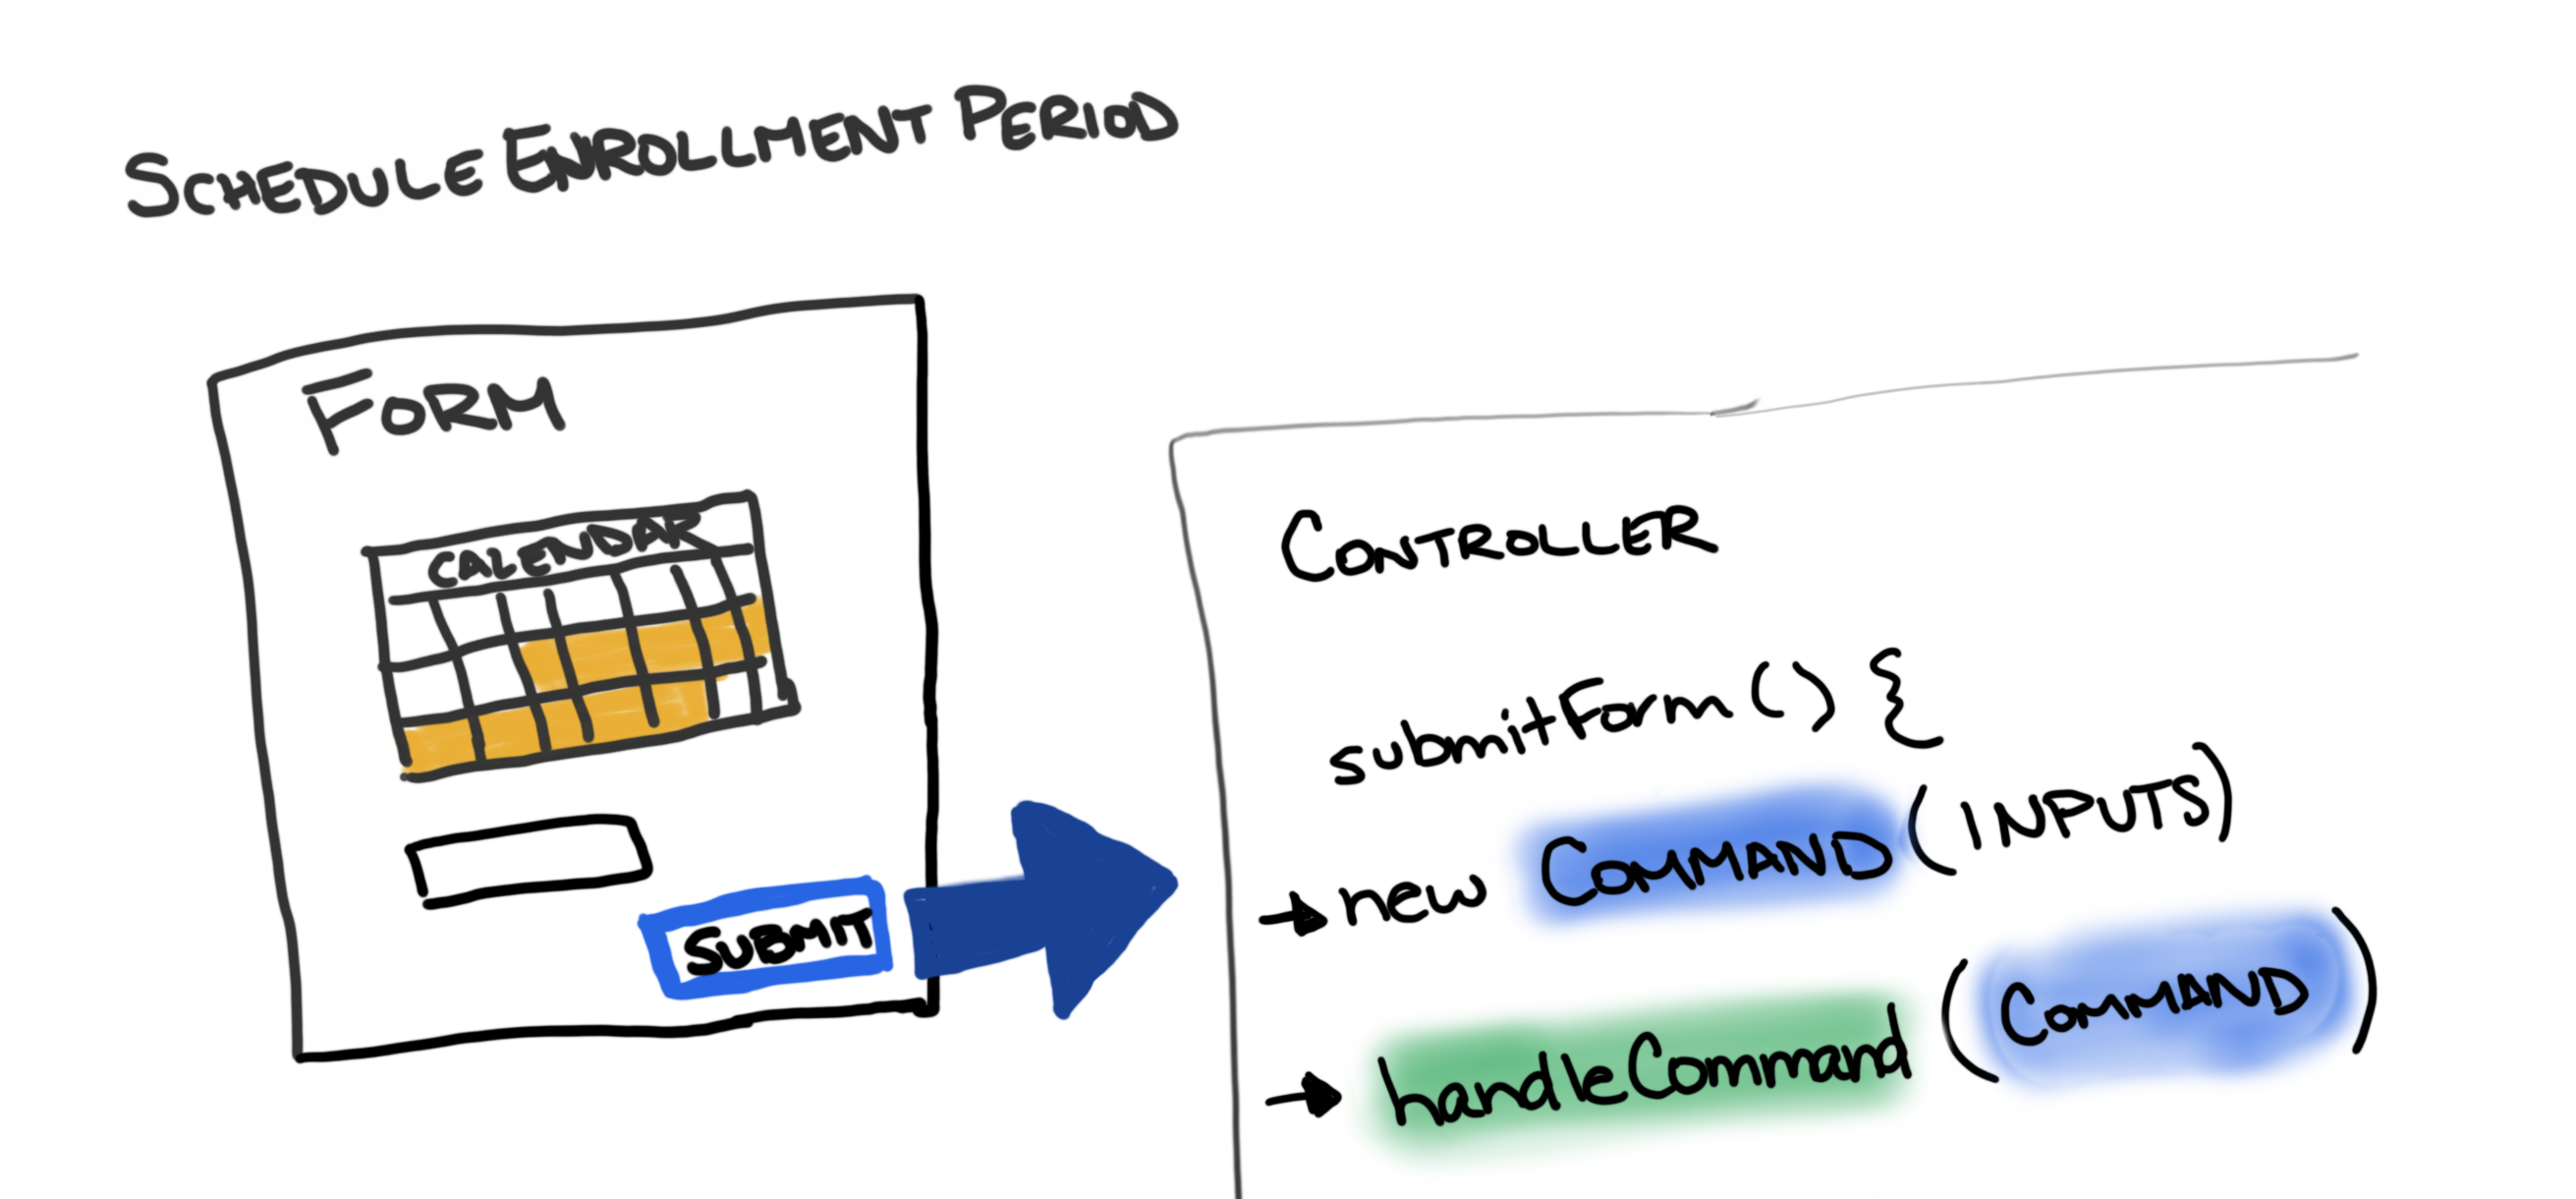 SCHEDULE ENROLLMENT PERIOD
FORM
CALENDAR
SUBMIT
CONTROLLER
submitForm() {
→ new COMMAND (INPUTS)
→ handleCommand (COMMAND)